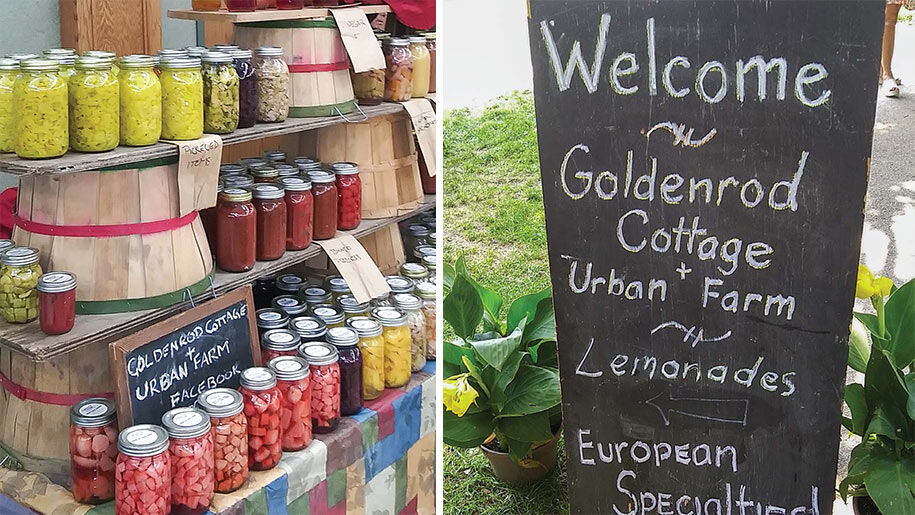 PICKELED
ITEMS
GOLDENROD COTTAGE
+
URBAN FARM
FACEBOOK
Welcome
Goldenrod
Cottage
+
Urban Farm
Lemonades
European
Specialties